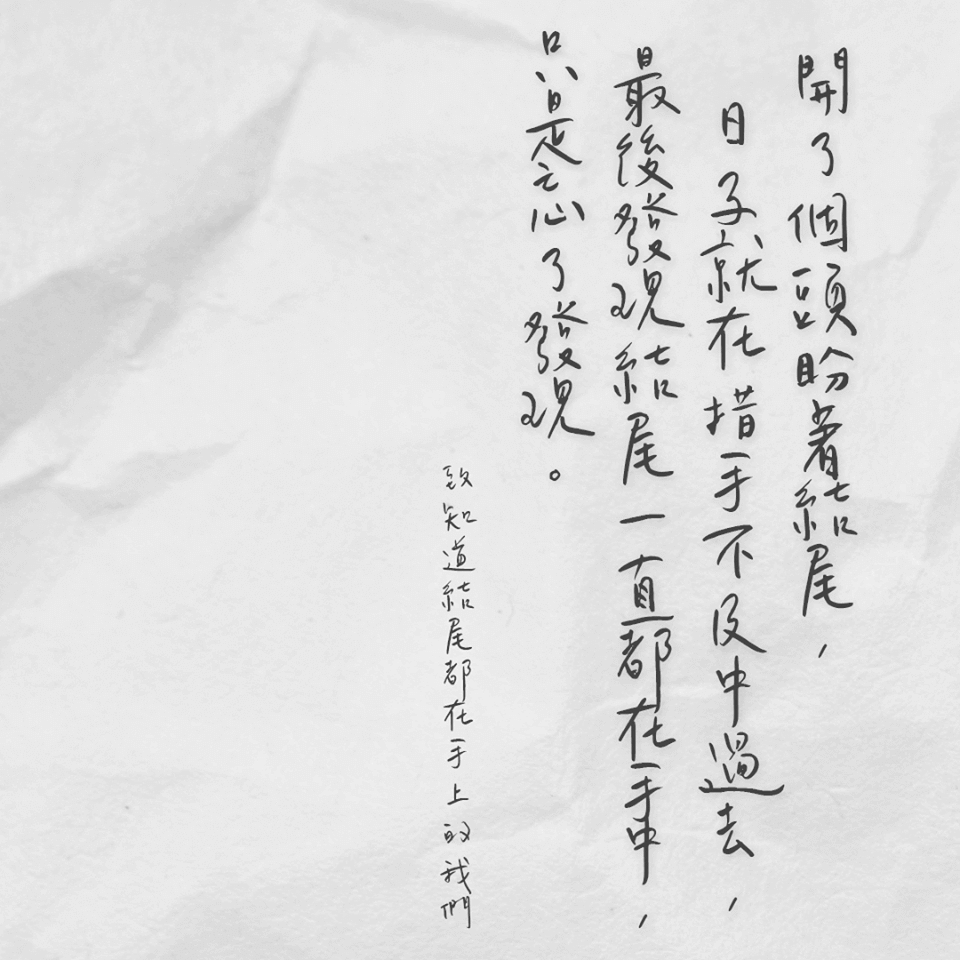 開了個頭盼著結尾，
日子就在措手不及中過去，
最後發現結尾一直都在手中，
只是忘了發現。
致知道結尾都在手上的我們